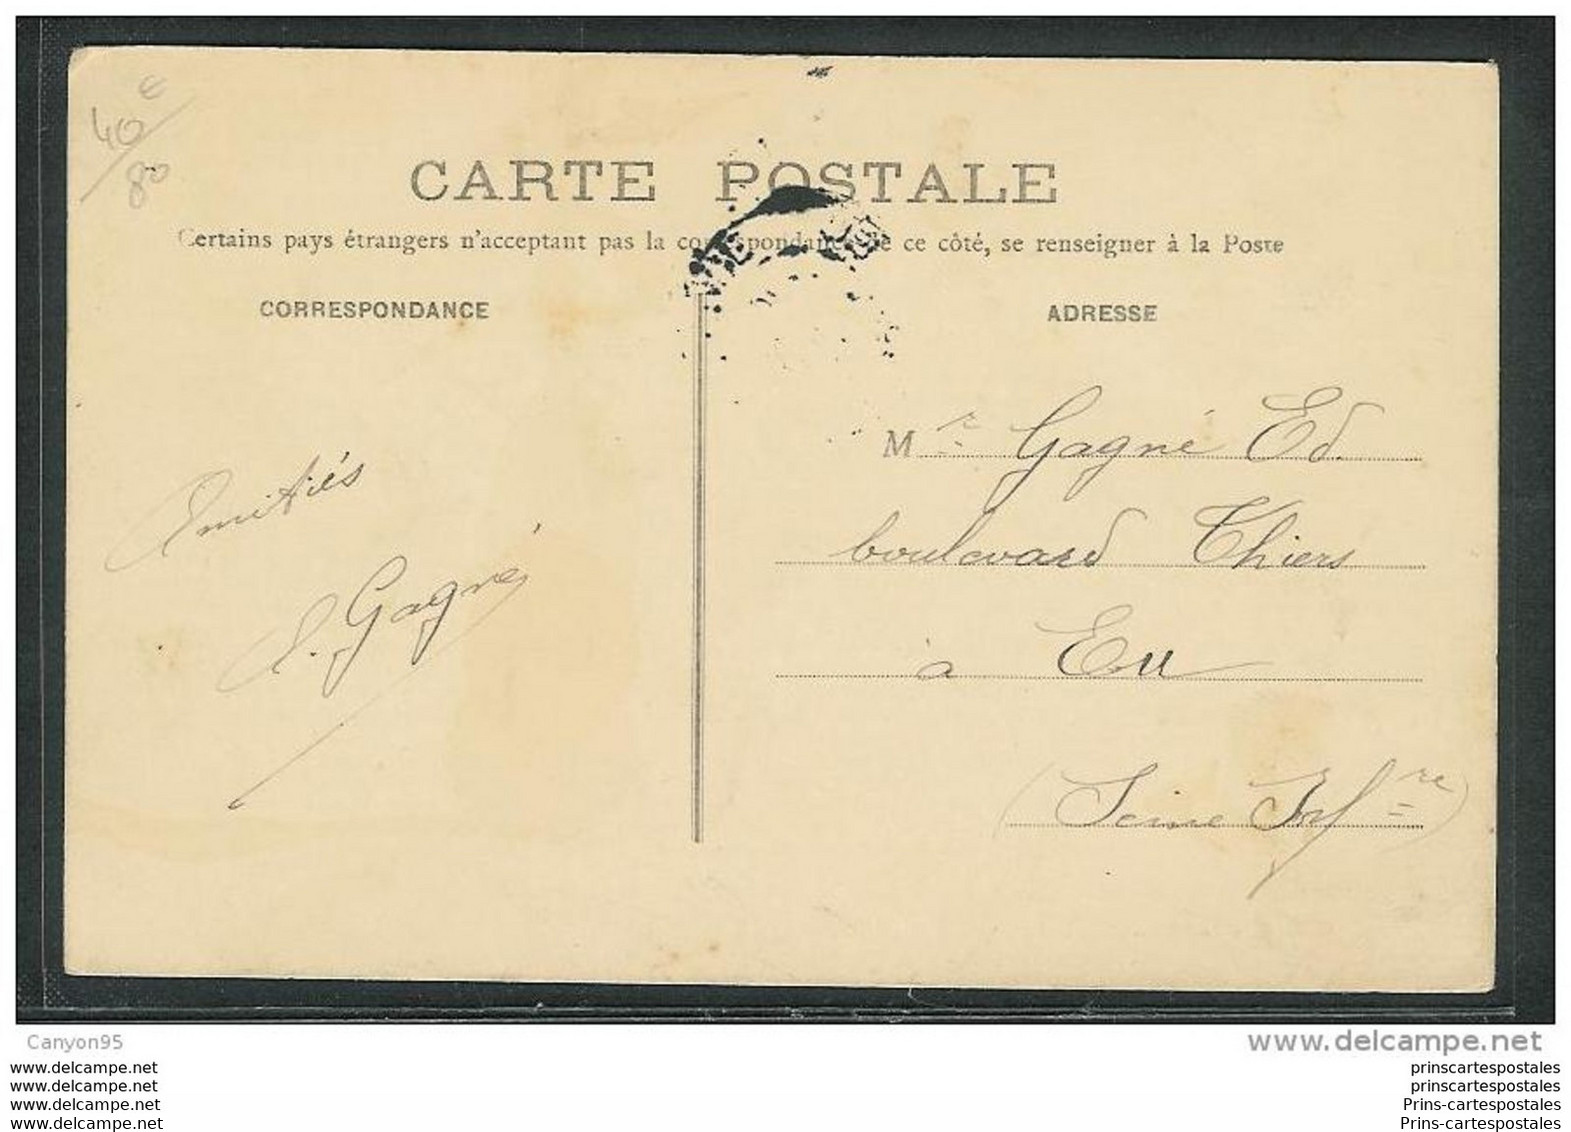 40€
80
CARTE POSTALE
Certains pays étrangers n'acceptant pas la correspondance de ce côté, se renseigner à la Poste
CORRESPONDANCE
ADRESSE
Amitiés
Gagné
Mr Gagné Ed.
boulevard Thiers
à Eu
(Seine Infre)
Canyon95
www.delcampe.net
www.delcampe.net
www.delcampe.net
www.delcampe.net
www.delcampe.net
prinscartespostales
prinscartespostales
Prins-cartespostales
Prins-cartespostales